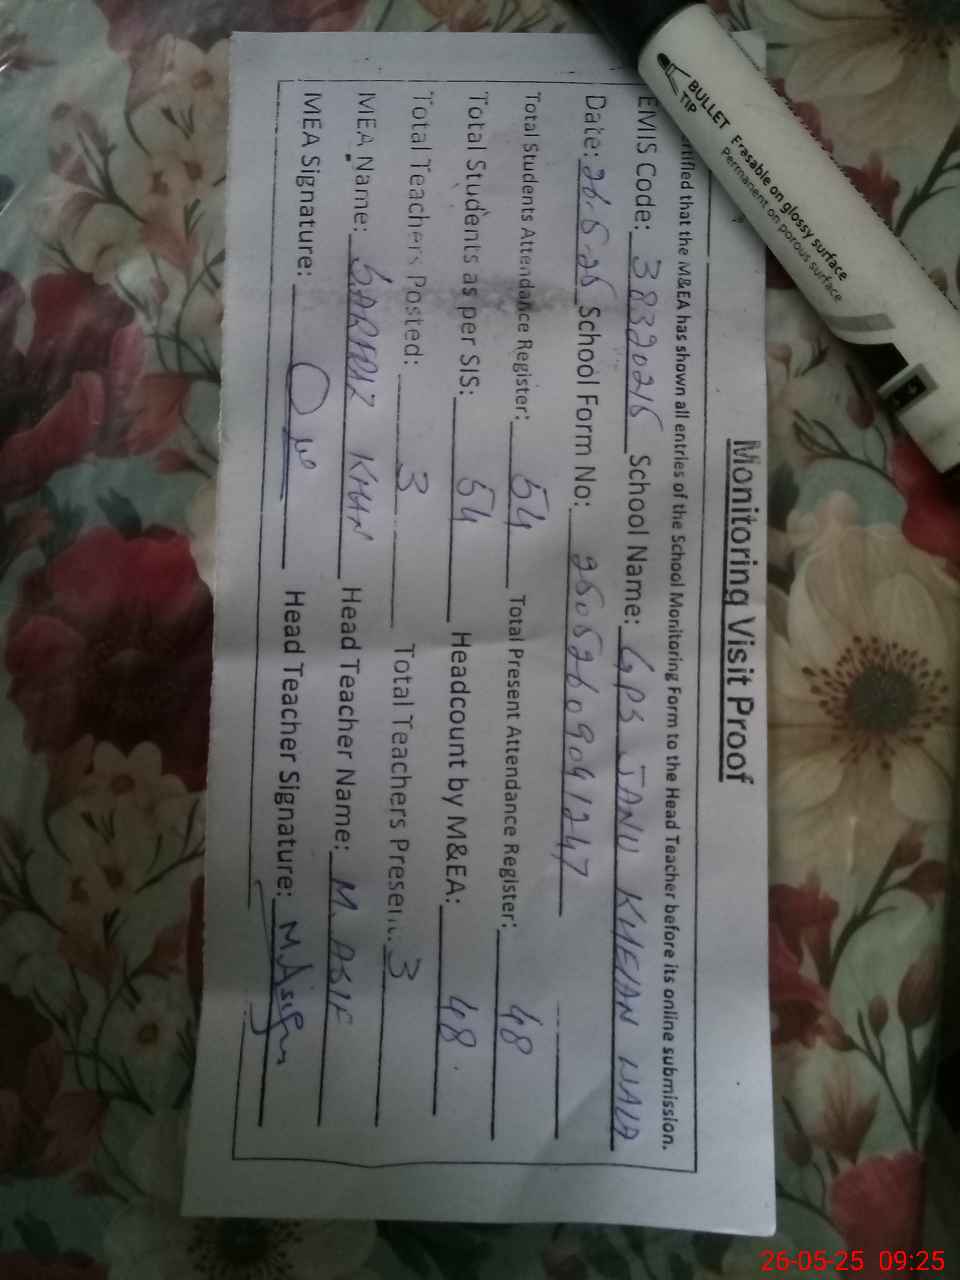 Monitoring Visit Proof
rtified that the M&EA has shown all entries of the School Monitoring Form to the Head Teacher before its online submission.
EMIS Code: 38320215 School Name: GPS JANU KHELAN WALA
Date: 26-5-25 School Form No: 25052609091247
Total Students Attendance Register: 54 Total Present Attendance Register: 48
Total Students as per SIS: 54 Headcount by M&EA: 48
Total Teachers Posted: 3 Total Teachers Present: 3
MEA Name: SARFRAZ KHAN Head Teacher Name: M. ASIF
MEA Signature: Head Teacher Signature: M Asif
BULLET TIP
Erasable on glossy surface
Permanent on porous surface
26-05-25 09:25